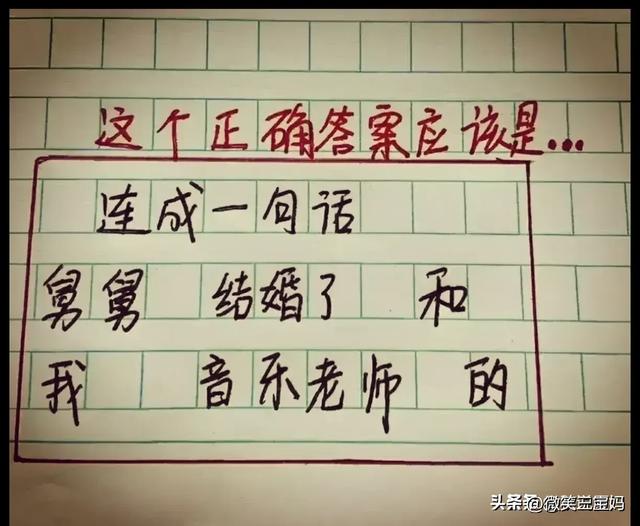 这个正确答案应该是...
连成一句话
舅舅 结婚了 和
我 音乐老师 的
头条 @微笑三宝妈